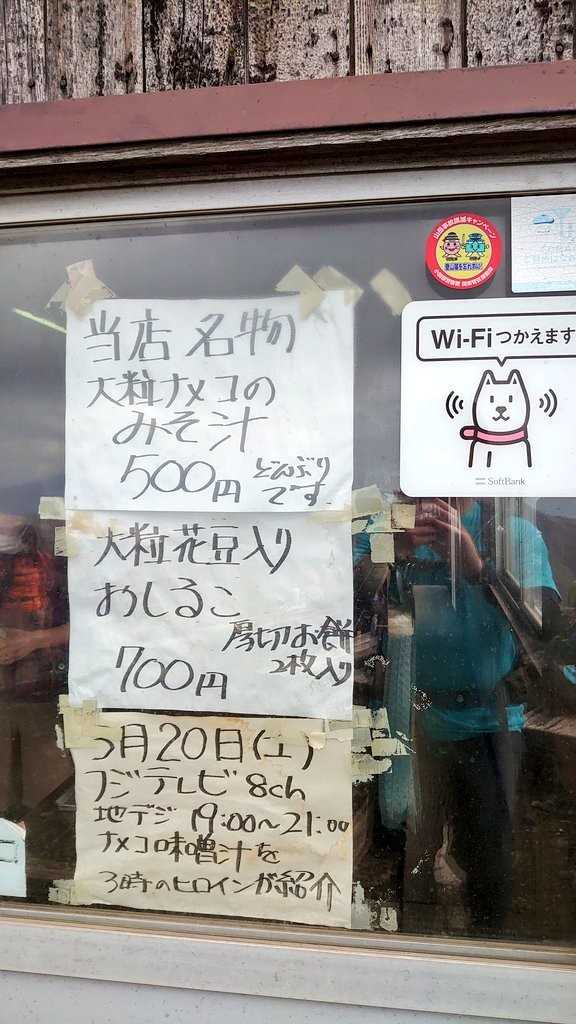 当店名物
大粒ナメコの
みそ汁
500円 どんぶり
です
大粒花豆入り
おしるこ
厚切お餅
2枚入り
700円
5月20日(土)
フジテレビ 8ch
地デジ 19:00~21:00
ナメコ味噌汁を
3時のヒロインが紹介
Wi-Fiつかえます
SoftBank